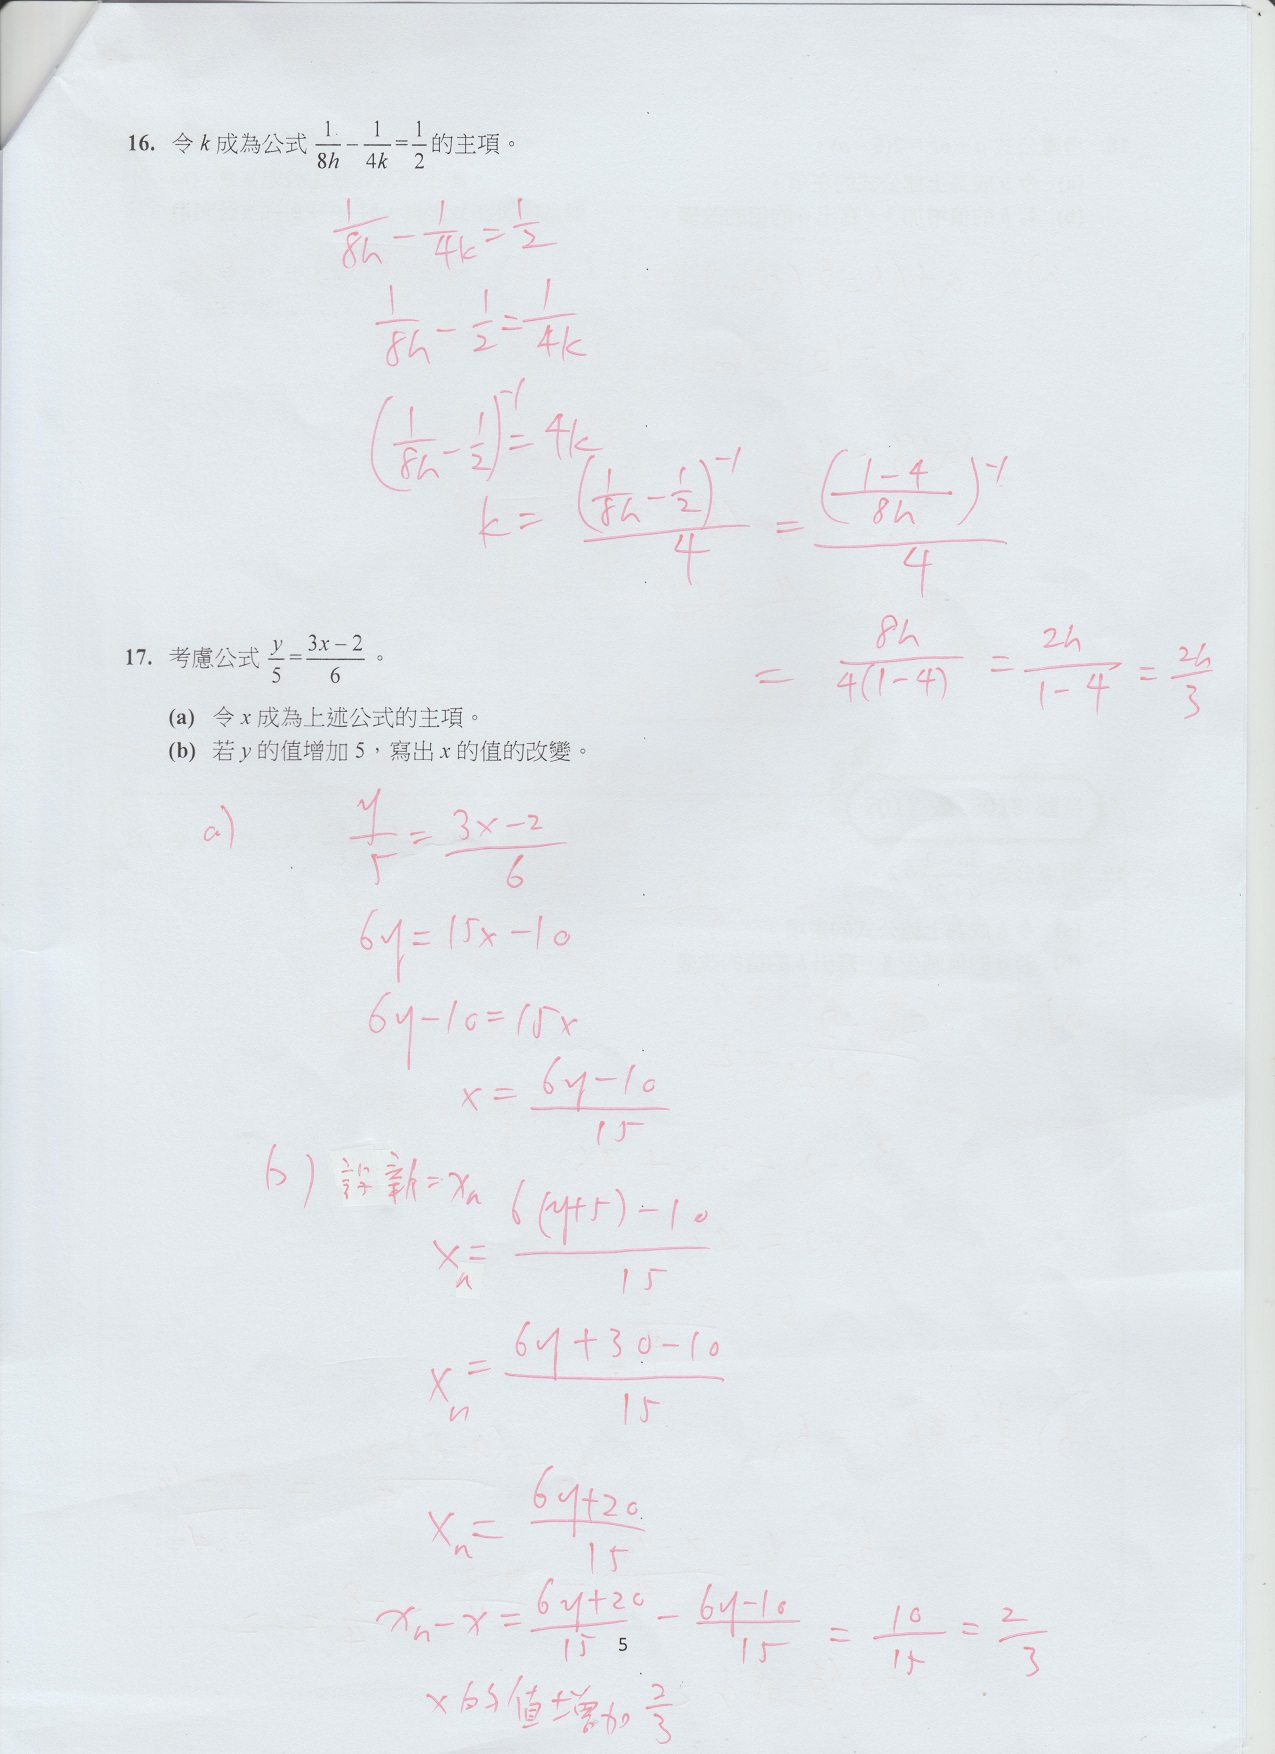 16. 令 k 成為公式 1/8h − 1/4k = 1/2 的主項。
1/8h − 1/4k = 1/2
1/8h − 1/2 = 1/4k
(1/8h − 1/2)^-1 = 4k
k = (1/8h − 1/2)^-1 / 4 = ((1−4)/8h)^-1 / 4
= 8h / 4(1−4) = 2h / 1−4 = 2h/3
17. 考慮公式 y/5 = (3x − 2)/6 。
(a) 令 x 成為上述公式的主項。
(b) 若 y 的值增加 5，寫出 x 的值的改變。
a) y/5 = (3x−2)/6
6y = 15x − 10
6y − 10 = 15x
x = (6y − 10)/15
b) 設新 = x_n
x_n = (6(y+5) − 10)/15
x_n = (6y + 30 − 10)/15
x_n = (6y+20)/15
x_n − x = (6y+20)/15 − (6y−10)/15 = 10/15 = 2/3
x 的值增加 2/3
5